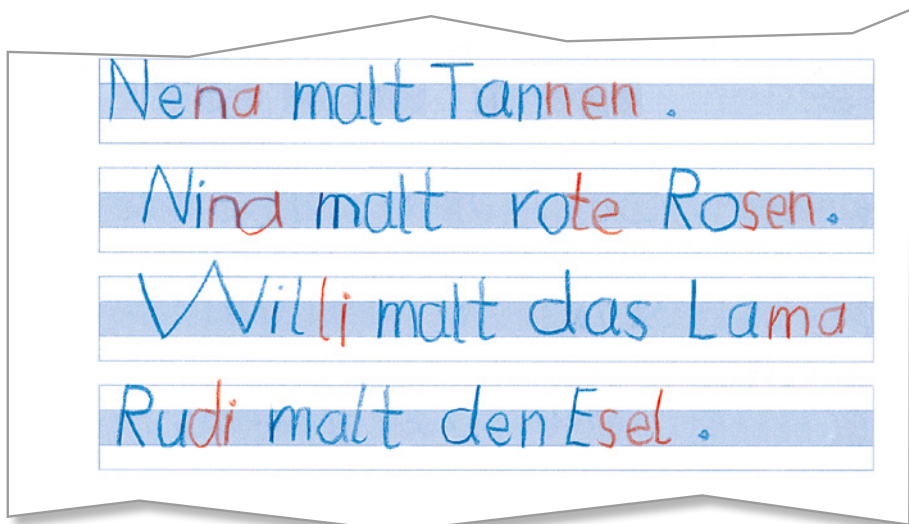 Nena malt Tannen .
Nina malt rote Rosen.
Willi malt das Lama
Rudi malt den Esel .